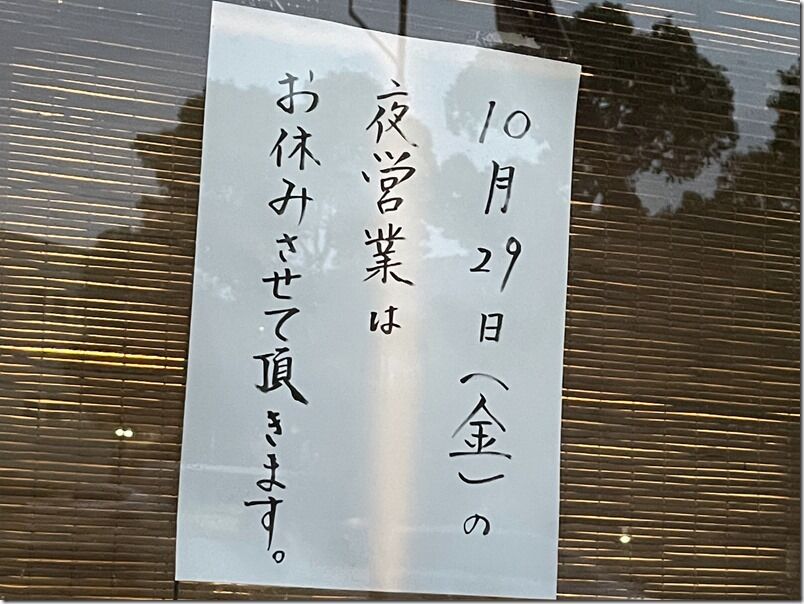 10月29日(金)の
夜営業は
お休みさせて頂きます。